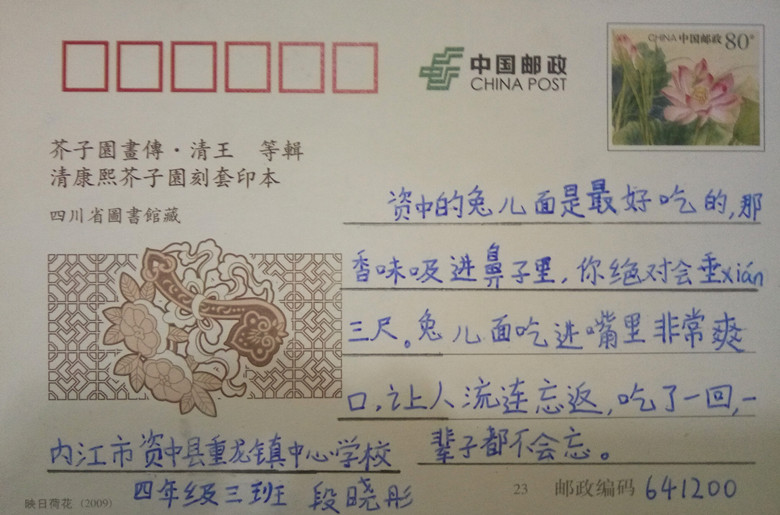 中国邮政
CHINA POST
CHINA 中国邮政 80分
芥子園畫傳·清王 等輯
清康熙芥子園刻套印本
四川省圖書館藏
资中的兔儿面是最好吃的,那
香味吸进鼻子里,你绝对会垂xián
三尺。兔儿面吃进嘴里非常爽
口,让人流连忘返,吃了一回,一
辈子都不会忘。
内江市资中县重龙镇中心学校
四年级三班 段晓彤
映日荷花(2009)
23
邮政编码 641200